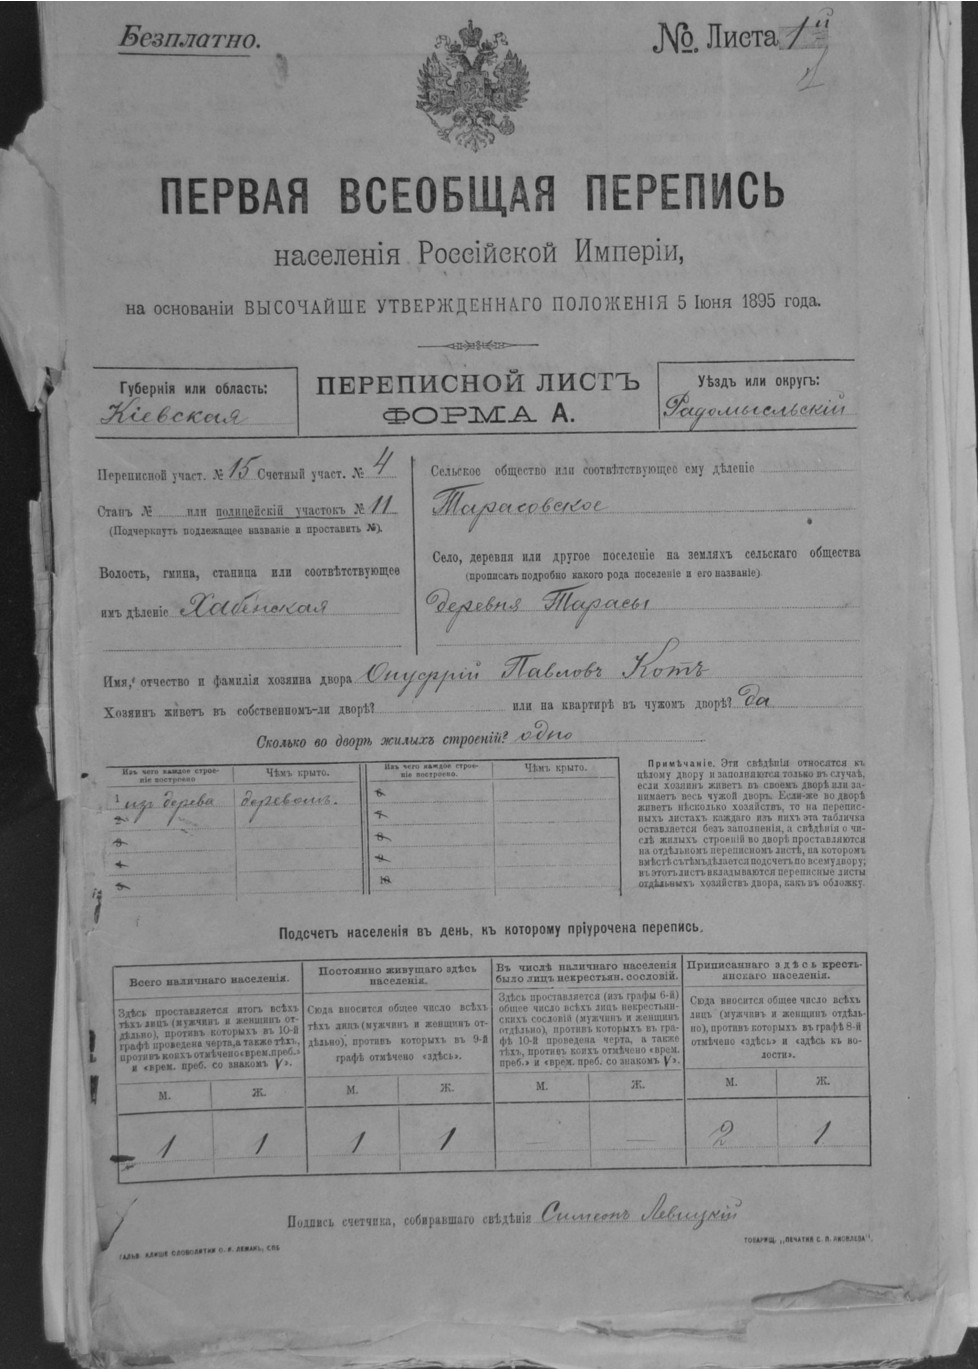 Безплатно.
№. Листа 1й
ПЕРВАЯ ВСЕОБЩАЯ ПЕРЕПИСЬ
населенія Россійской Имперіи,
на основаніи ВЫСОЧАЙШЕ УТВЕРЖДЕННАГО ПОЛОЖЕНІЯ 5 Іюня 1895 года.
Губернія или область:
Кіевская
ПЕРЕПИСНОЙ ЛИСТЪ
ФОРМА А.
Уѣздъ или округъ:
Радомысльскій
Переписной участ. № 15 Счетный участ. № 4
Станъ № или полицейскій участокъ № 11
(Подчеркнуть подлежащее названіе и проставить №).
Волость, гмина, станица или соотвѣтствующее
имъ дѣленіе Хабенская
Сельское общество или соотвѣтствующее ему дѣленіе
Тарасовское
Село, деревня или другое поселеніе на земляхъ сельскаго общества
(прописать подробно какого рода поселеніе и его названіе)
деревня Тарасы
Имя, отчество и фамилія хозяина двора Онуфрій Павловъ Котъ
Хозяинъ живетъ въ собственномъ-ли дворѣ? или на квартирѣ въ чужомъ дворѣ? да
Сколько во дворѣ жилыхъ строеній? одно
Изъ чего каждое строе-
ніе построено
Чѣмъ крыто.
Изъ чего каждое строе-
ніе построено.
Чѣмъ крыто.
1 изъ дерева деревомъ.
2
3
4
5
6
7
8
9
10
Примѣчаніе. Эти свѣдѣнія относятся къ
цѣлому двору и заполняются только въ случаѣ,
если хозяинъ живетъ въ своемъ дворѣ или за-
нимаетъ весь чужой дворъ. Если-же во дворѣ
живетъ нѣсколько хозяйствъ, то на перепис-
ныхъ листахъ каждаго изъ нихъ эта табличка
оставляется безъ заполненія, а свѣдѣнія о чи-
слѣ жилыхъ строеній во дворѣ проставляются
на отдѣльномъ переписномъ листѣ, на которомъ
вмѣстѣ съ тѣмъ дѣлается подсчетъ по всему двору;
въ этотъ листъ вкладываются переписные листы
отдѣльныхъ хозяйствъ двора, какъ въ обложку.
Подсчетъ населенія въ день, къ которому пріурочена перепись.
Всего наличнаго населенія.
Здѣсь проставляется итогъ всѣхъ
тѣхъ лицъ (мужчинъ и женщинъ от-
дѣльно), противъ которыхъ въ 10-й
графѣ проведена черта, а также тѣхъ,
противъ коихъ отмѣчено «врем. преб.»
и «врем. преб. со знакомъ V».
М. Ж.
1 1
Постоянно живущаго здѣсь
населенія.
Сюда вносится общее число всѣхъ
тѣхъ лицъ (мужчинъ и женщинъ от-
дѣльно), противъ которыхъ въ 9-й
графѣ отмѣчено «здѣсь».
М. Ж.
1 1
Въ числѣ наличнаго населенія
было лицъ некрестьян. сословій.
Здѣсь проставляется (изъ графы 6-й)
общее число всѣхъ лицъ некрестьян-
скихъ сословій (мужчинъ и женщинъ
отдѣльно), противъ которыхъ въ гра-
фѣ 10-й проведена черта, а также
тѣхъ, противъ коихъ отмѣчено «врем.
преб.» и «врем. преб. со знакомъ V».
М. Ж.
— —
Приписаннаго здѣсь кресть-
янскаго населенія.
Сюда вносится общее число всѣхъ
лицъ (мужчинъ и женщинъ отдѣль-
но), противъ которыхъ въ графѣ 8-й
отмѣчено «здѣсь» и «здѣсь къ во-
лости».
М. Ж.
2 1
Подпись счетчика, собиравшаго свѣдѣнія Симеонъ Левицкій
ГАЛЬВ. КЛИШЕ СЛОВОЛИТНИ О. И. ЛЕМАНЪ, СПБ
ТОВАРИЩ. „ПЕЧАТНЯ С. П. ЯКОВЛЕВА".